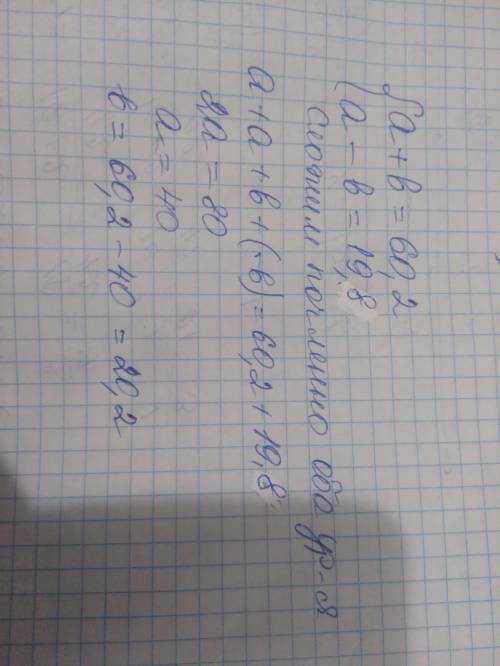 { a + b = 60,2
{ a - b = 19,8
Сложим почленно оба ур-я
a + a + b + (-b) = 60,2 + 19,8
2a = 80
a = 40
b = 60,2 - 40 = 20,2